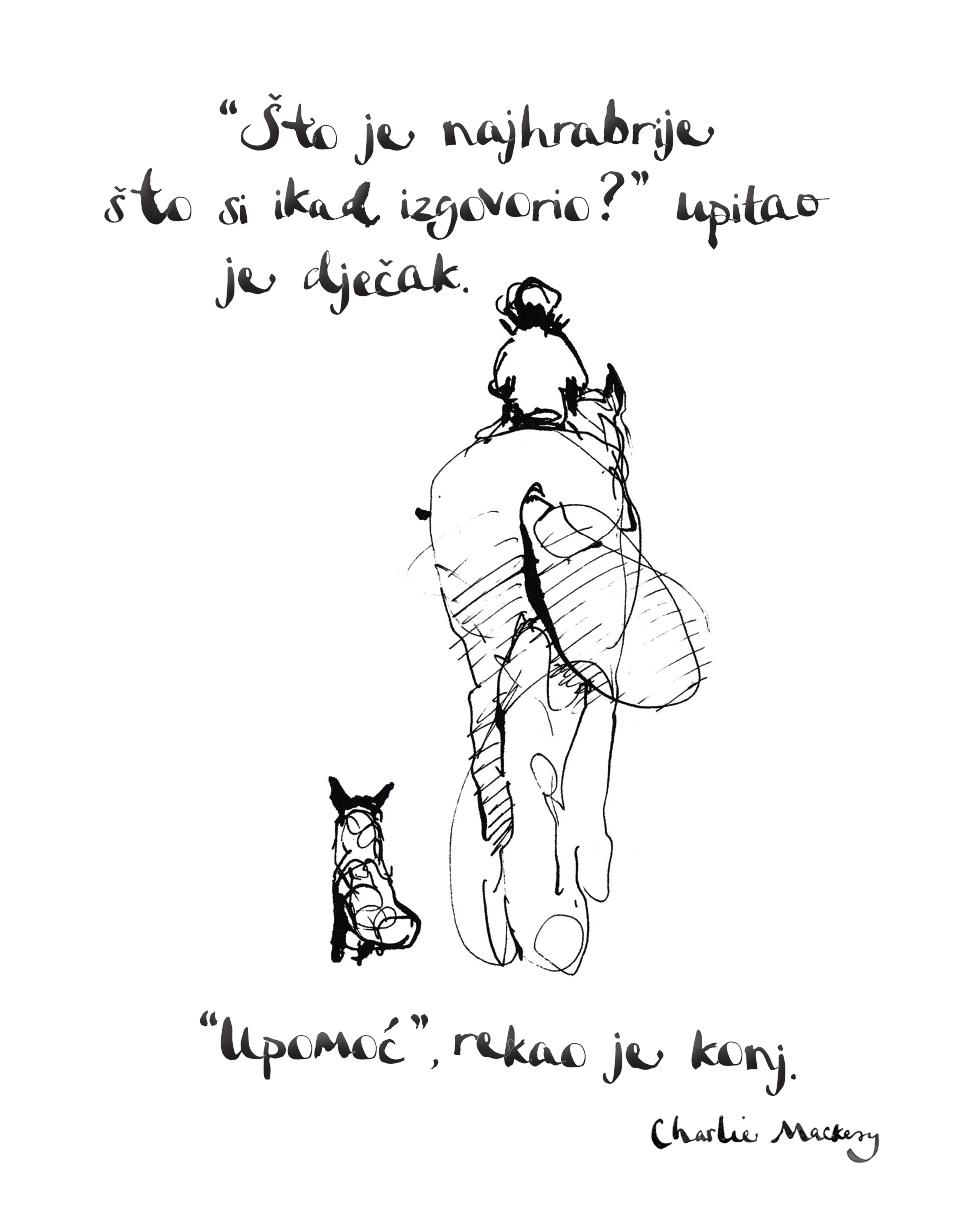 “Što je najhrabrije
što si ikad izgovorio?” upitao
je dječak.
“Upomoć”, rekao je konj.
Charlie Mackesy